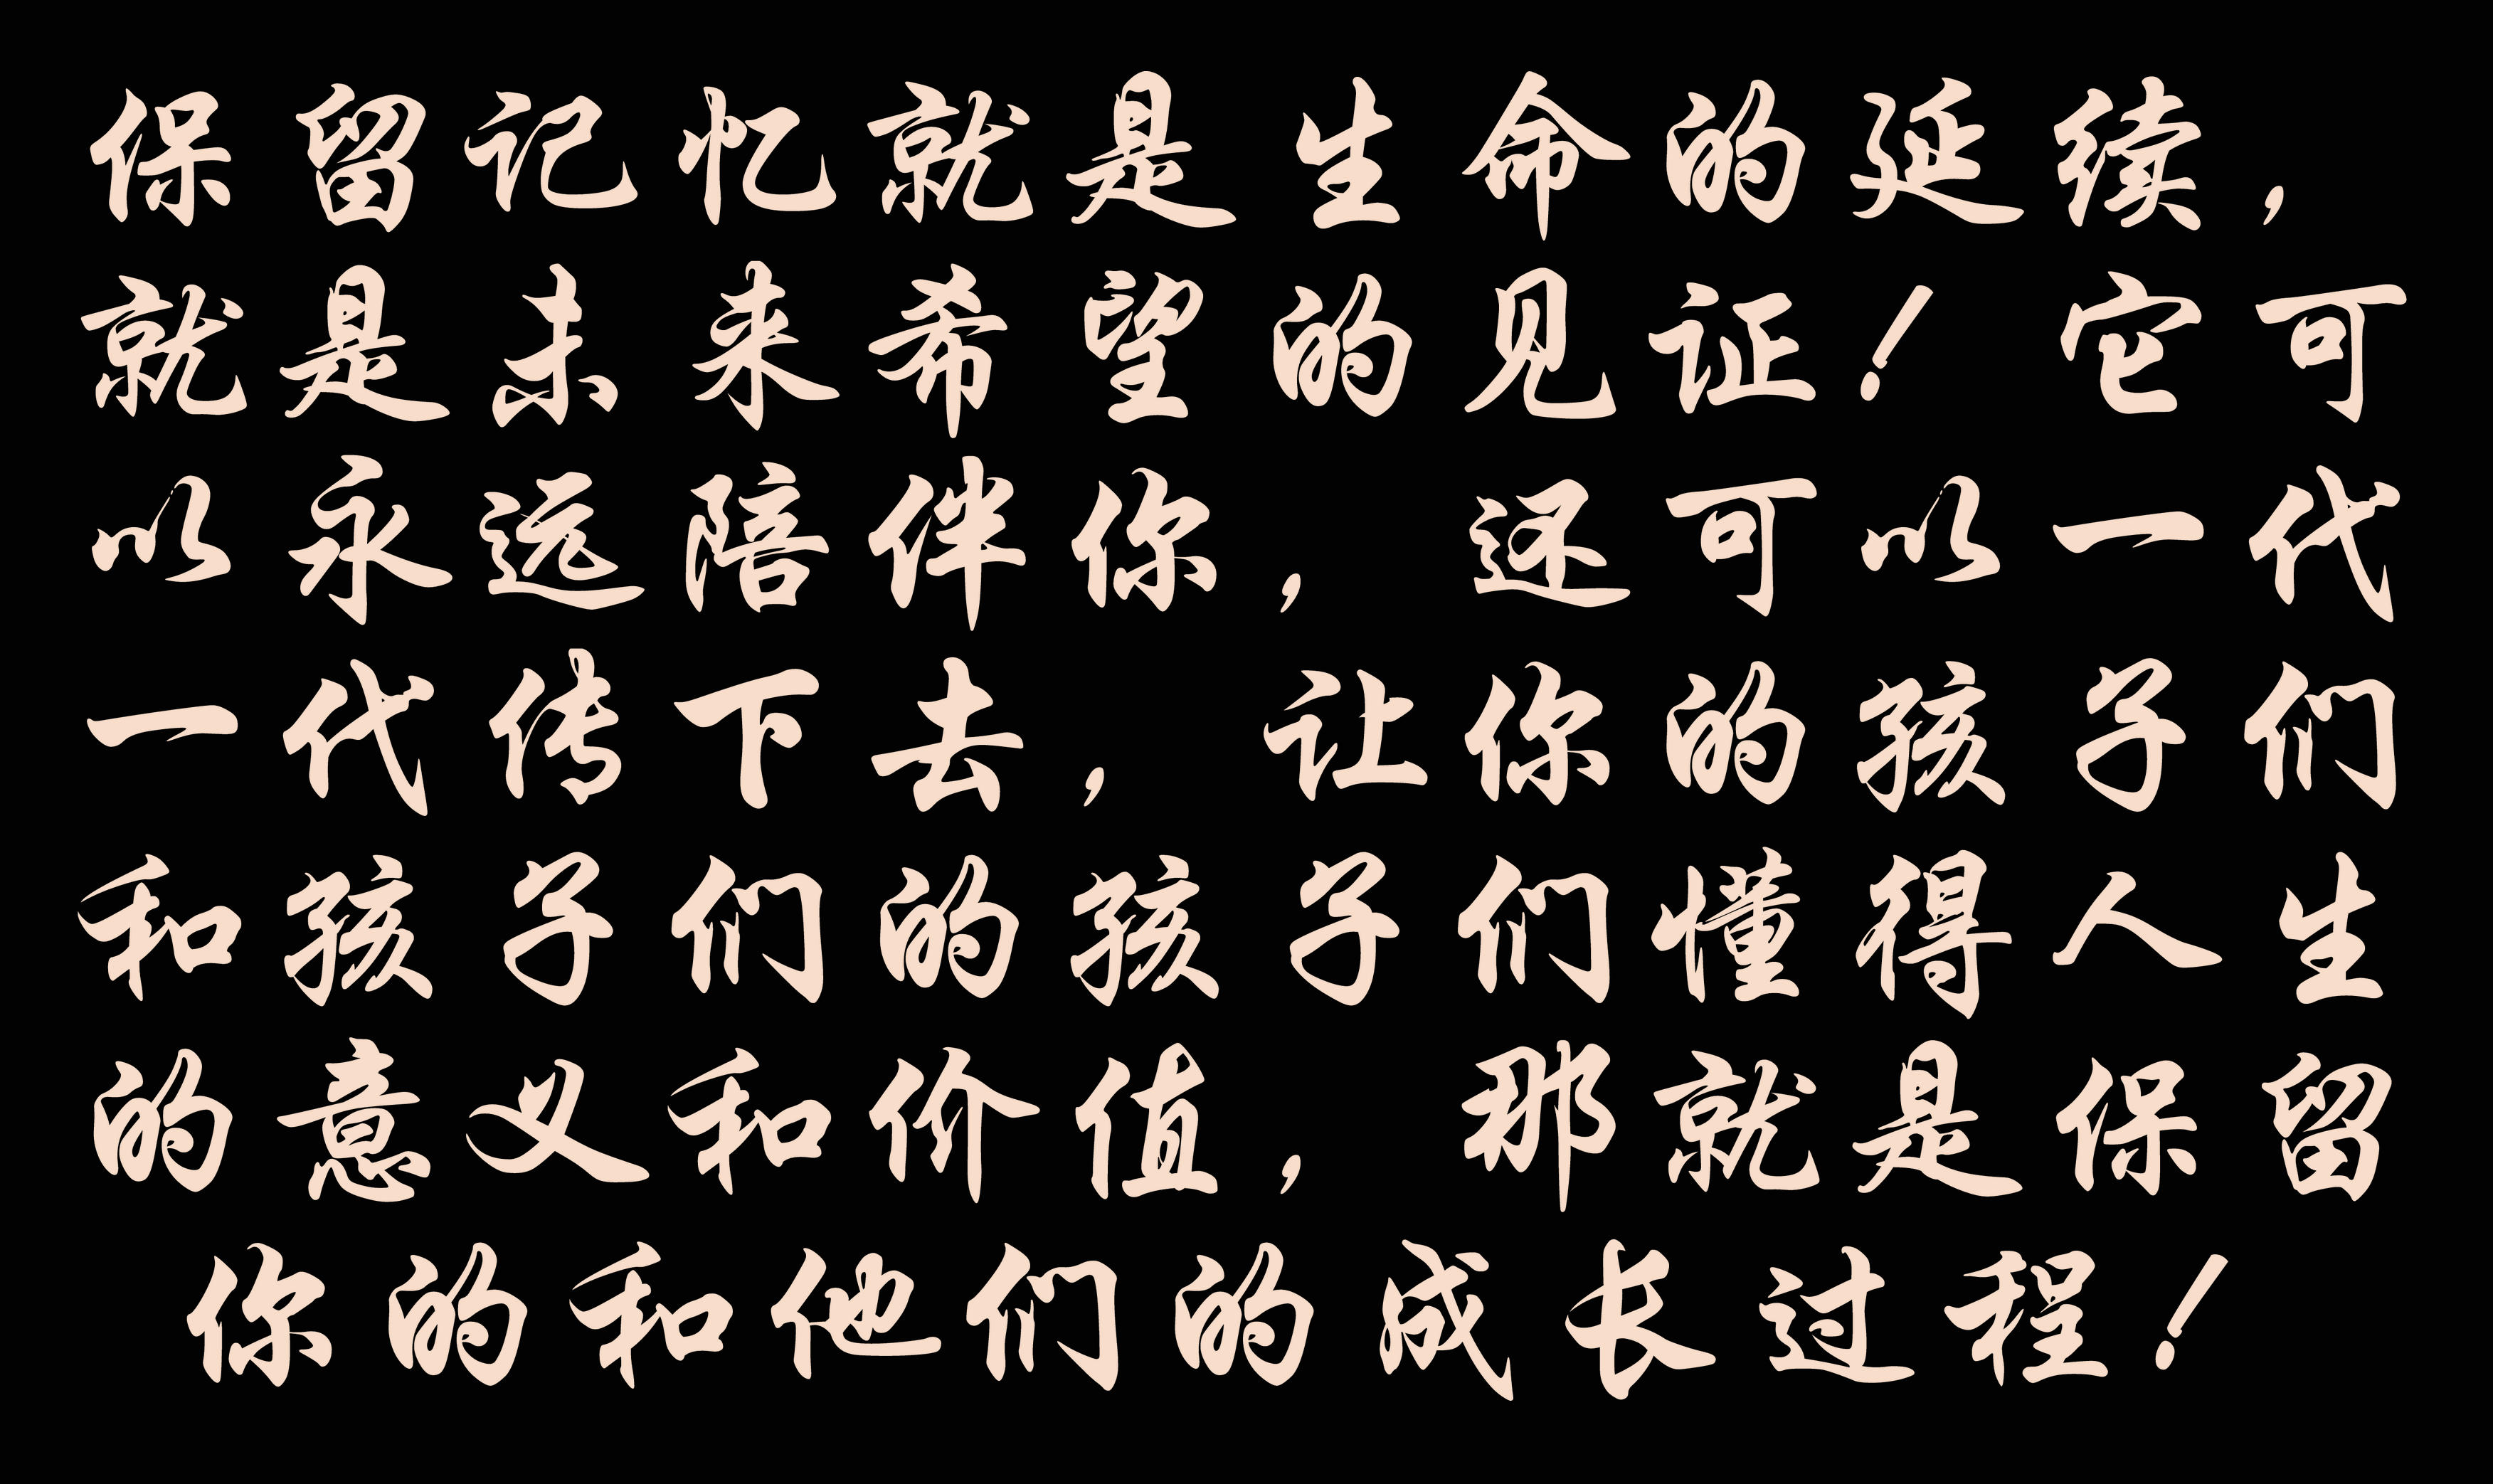 保留记忆就是生命的延续，
就是未来希望的见证！它可
以永远陪伴你，还可以一代
一代传下去，让你的孩子们
和孩子们的孩子们懂得人生
的意义和价值，那就是保留
你的和他们的成长过程！